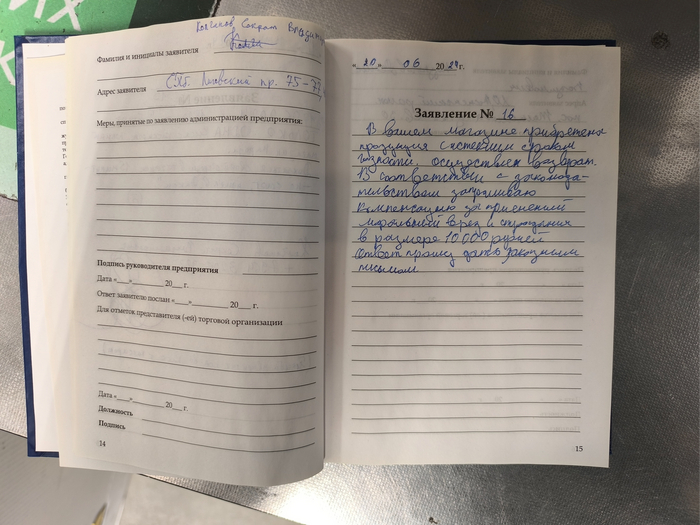 Сократ
Фамилия и инициалы заявителя
Адрес заявителя СПб. пр. 75-77
Меры, принятые по заявлению администрацией предприятия:
Подпись руководителя предприятия
Дата «___»________ 20___ г.
Ответ заявителю послан «___»________ 20___ г.
Для отметок представителя (-ей) торговой организации
Дата «___»________ 20___ г.
Должность
Подпись
14
«20» 06 2024г.
Заявление № 16
В вашем магазине приобретена
продукция с истекшим сроком
годности. осуществлен возврат.
В соответствии с законода-
тельством запрашиваю
компенсацию за
моральный вред и страдания
в размере 10000 рублей
Ответ прошу дать заказным
письмом
15